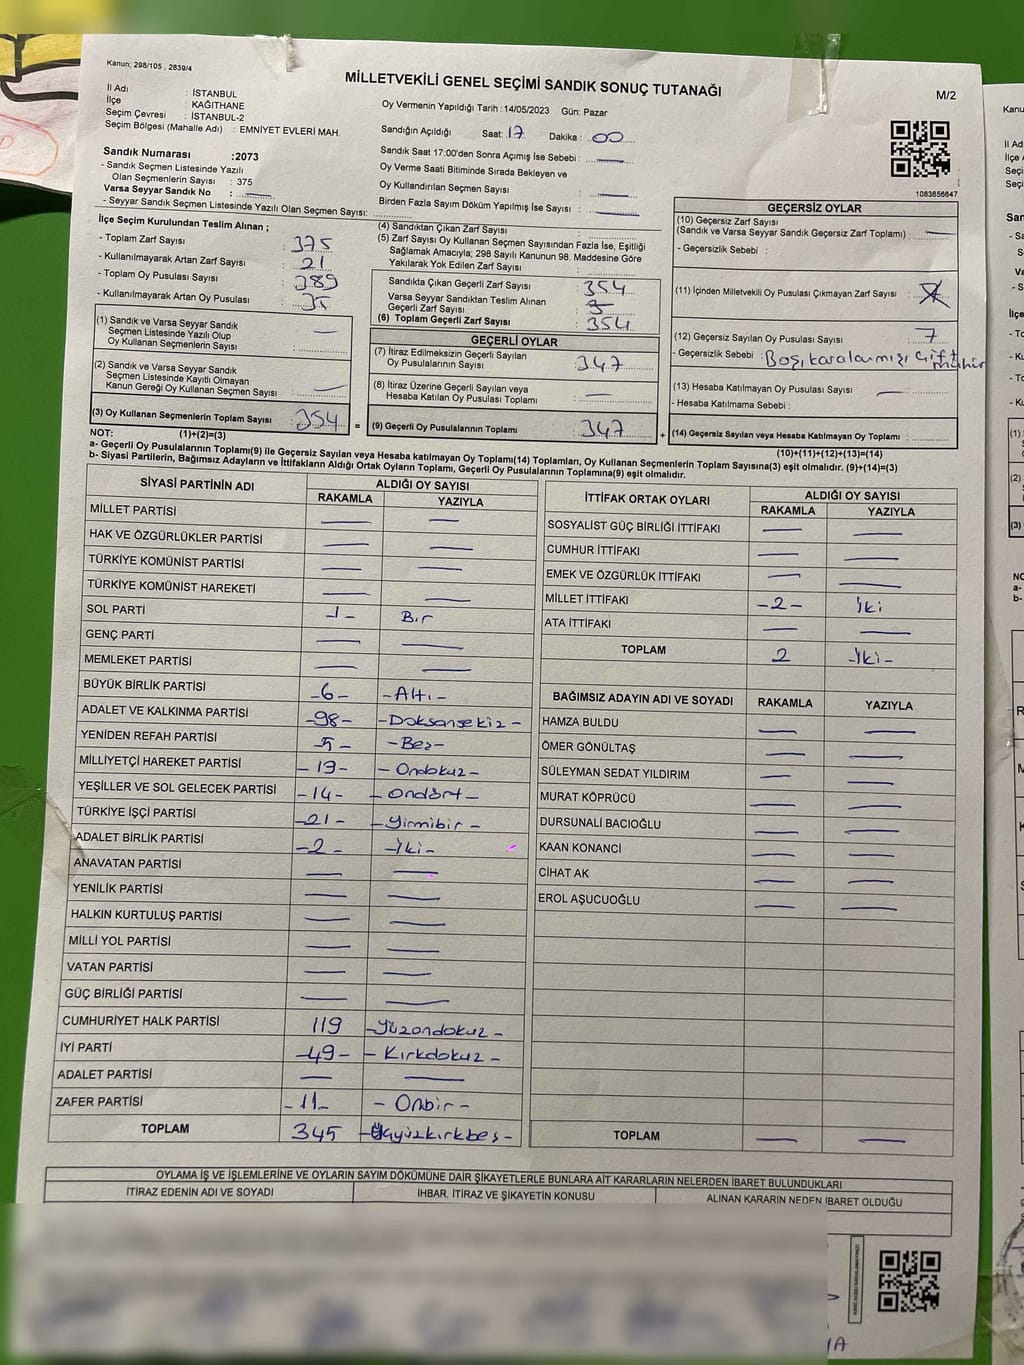 Kanun; 298/105 , 2839/4
MİLLETVEKİLİ GENEL SEÇİMİ SANDIK SONUÇ TUTANAĞI
M/2
İl Adı : İSTANBUL
İlçe : KAĞITHANE
Seçim Çevresi : İSTANBUL-2
Seçim Bölgesi (Mahalle Adı) : EMNİYET EVLERİ MAH.
Sandık Numarası :2073
- Sandık Seçmen Listesinde Yazılı
Olan Seçmenlerin Sayısı : 375
Varsa Seyyar Sandık No : —
- Seyyar Sandık Seçmen Listesinde Yazılı Olan Seçmen Sayısı:
Oy Vermenin Yapıldığı Tarih :14/05/2023 Gün: Pazar
Sandığın Açıldığı Saat: 17 Dakika : 00
Sandık Saat 17:00'den Sonra Açımış İse Sebebi : —
Oy Verme Saati Bitiminde Sırada Bekleyen ve
Oy Kullandırılan Seçmen Sayısı : —
Birden Fazla Sayım Döküm Yapılmış İse Sayısı : —
1083656647
İlçe Seçim Kurulundan Teslim Alınan ;
- Toplam Zarf Sayısı : 375
- Kullanılmayarak Artan Zarf Sayısı : 21
- Toplam Oy Pusulası Sayısı : 389
- Kullanılmayarak Artan Oy Pusulası : 35
(1) Sandık ve Varsa Seyyar Sandık
Seçmen Listesinde Yazılı Olup
Oy Kullanan Seçmenlerin Sayısı : —
(2) Sandık ve Varsa Seyyar Sandık
Seçmen Listesinde Kayıtlı Olmayan
Kanun Gereği Oy Kullanan Seçmen Sayısı : —
(3) Oy Kullanan Seçmenlerin Toplam Sayısı : 354 =
(1)+(2)=(3)
(4) Sandıktan Çıkan Zarf Sayısı :
(5) Zarf Sayısı Oy Kullanan Seçmen Sayısından Fazla İse, Eşitliği
Sağlamak Amacıyla; 298 Sayılı Kanunun 98. Maddesine Göre
Yakılarak Yok Edilen Zarf Sayısı :
Sandıkta Çıkan Geçerli Zarf Sayısı : 354
Varsa Seyyar Sandıktan Teslim Alınan
Geçerli Zarf Sayısı :
(6) Toplam Geçerli Zarf Sayısı : 354
GEÇERLİ OYLAR
(7) İtiraz Edilmeksizin Geçerli Sayılan
Oy Pusulalarının Sayısı : 347
(8) İtiraz Üzerine Geçerli Sayılan veya
Hesaba Katılan Oy Pusulası Toplamı : —
(9) Geçerli Oy Pusulalarının Toplamı : 347 +
GEÇERSİZ OYLAR
(10) Geçersiz Zarf Sayısı
(Sandık ve Varsa Seyyar Sandık Geçersiz Zarf Toplamı) : —
- Geçersizlik Sebebi :
(11) İçinden Milletvekili Oy Pusulası Çıkmayan Zarf Sayısı :
(12) Geçersiz Sayılan Oy Pusulası Sayısı : 7
- Geçersizlik Sebebi : Boş, karalanmış, çift mühür
(13) Hesaba Katılmayan Oy Pusulası Sayısı : —
- Hesaba Katılmama Sebebi :
(14) Geçersiz Sayılan veya Hesaba Katılmayan Oy Toplamı :
(10)+(11)+(12)+(13)=(14)
NOT:
a- Geçerli Oy Pusulalarının Toplamı(9) ile Geçersiz Sayılan veya Hesaba katılmayan Oy Toplamı(14) Toplamları, Oy Kullanan Seçmenlerin Toplam Sayısına(3) eşit olmalıdır. (9)+(14)=(3)
b- Siyasi Partilerin, Bağımsız Adayların ve İttifakların Aldığı Ortak Oyların Toplamı, Geçerli Oy Pusulalarının Toplamına(9) eşit olmalıdır.
SİYASİ PARTİNİN ADI ALDIĞI OY SAYISI
RAKAMLA YAZIYLA
MİLLET PARTİSİ — —
HAK VE ÖZGÜRLÜKLER PARTİSİ — —
TÜRKİYE KOMÜNİST PARTİSİ — —
TÜRKİYE KOMÜNİST HAREKETİ — —
SOL PARTİ -1- Bir
GENÇ PARTİ — —
MEMLEKET PARTİSİ — —
BÜYÜK BİRLİK PARTİSİ -6- -Altı-
ADALET VE KALKINMA PARTİSİ -98- -Doksansekiz-
YENİDEN REFAH PARTİSİ -5- -Beş-
MİLLİYETÇİ HAREKET PARTİSİ -19- -Ondokuz-
YEŞİLLER VE SOL GELECEK PARTİSİ -14- -Ondört-
TÜRKİYE İŞÇİ PARTİSİ -21- -Yirmibir-
ADALET BİRLİK PARTİSİ -2- -İki-
ANAVATAN PARTİSİ — —
YENİLİK PARTİSİ — —
HALKIN KURTULUŞ PARTİSİ — —
MİLLİ YOL PARTİSİ — —
VATAN PARTİSİ — —
GÜÇ BİRLİĞİ PARTİSİ — —
CUMHURİYET HALK PARTİSİ 119 -Yüzondokuz-
İYİ PARTİ -49- -Kırkdokuz-
ADALET PARTİSİ — —
ZAFER PARTİSİ -11- -Onbir-
TOPLAM 345 -Üçyüzkırkbeş-
İTTİFAK ORTAK OYLARI ALDIĞI OY SAYISI
RAKAMLA YAZIYLA
SOSYALİST GÜÇ BİRLİĞİ İTTİFAKI — —
CUMHUR İTTİFAKI — —
EMEK VE ÖZGÜRLÜK İTTİFAKI — —
MİLLET İTTİFAKI -2- İki
ATA İTTİFAKI — —
TOPLAM 2 -İki-
BAĞIMSIZ ADAYIN ADI VE SOYADI RAKAMLA YAZIYLA
HAMZA BULDU — —
ÖMER GÖNÜLTAŞ — —
SÜLEYMAN SEDAT YILDIRIM — —
MURAT KÖPRÜCÜ — —
DURSUNALİ BACIOĞLU — —
KAAN KONANCI — —
CİHAT AK — —
EROL AŞUCUOĞLU — —
TOPLAM — —
OYLAMA İŞ VE İŞLEMLERİNE VE OYLARIN SAYIM DÖKÜMÜNE DAİR ŞİKAYETLERLE BUNLARA AİT KARARLARIN NELERDEN İBARET BULUNDUKLARI
İTİRAZ EDENİN ADI VE SOYADI İHBAR, İTİRAZ VE ŞİKAYETİN KONUSU ALINAN KARARIN NEDEN İBARET OLDUĞU